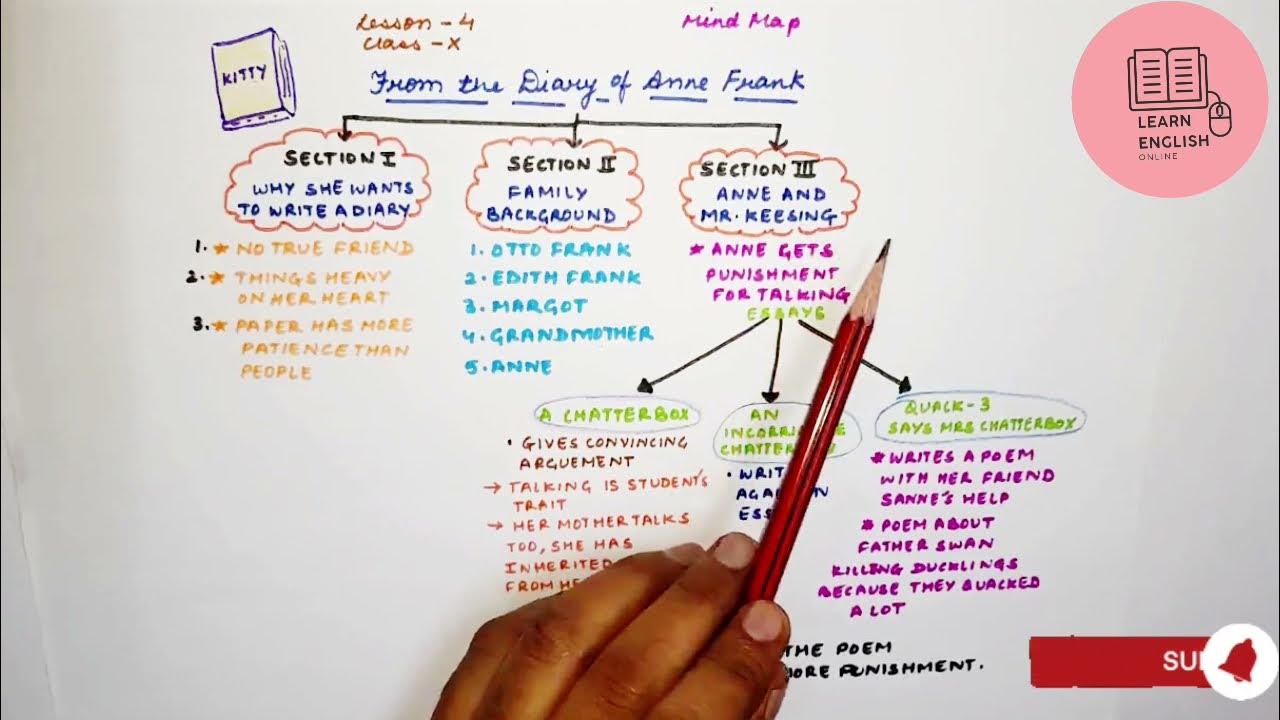 Lesson - 4
Class - X
Mind Map
KITTY
From the Diary of Anne Frank
LEARN
ENGLISH
ONLINE
SECTION I
WHY SHE WANTS
TO WRITE A DIARY
1. ★ NO TRUE FRIEND
2. ★ THINGS HEAVY
ON HER HEART
3. ★ PAPER HAS MORE
PATIENCE THAN
PEOPLE
SECTION II
FAMILY
BACKGROUND
1. OTTO FRANK
2. EDITH FRANK
3. MARGOT
4. GRANDMOTHER
5. ANNE
SECTION III
ANNE AND
MR. KEESING
★ ANNE GETS
PUNISHMENT
FOR TALKING
ESSAYS
A CHATTERBOX
• GIVES CONVINCING
ARGUEMENT
→ TALKING IS STUDENT'S
TRAIT
→ HER MOTHER TALKS
TOO, SHE HAS
INHERITED
FROM
AN
QUACK - 3
SAYS MRS CHATTERBOX
★ WRITES A POEM
WITH HER FRIEND
SANNE'S HELP
★ POEM ABOUT
FATHER SWAN
KILLING DUCKLINGS
BECAUSE THEY QUACKED
A LOT
THE POEM
PUNISHMENT.